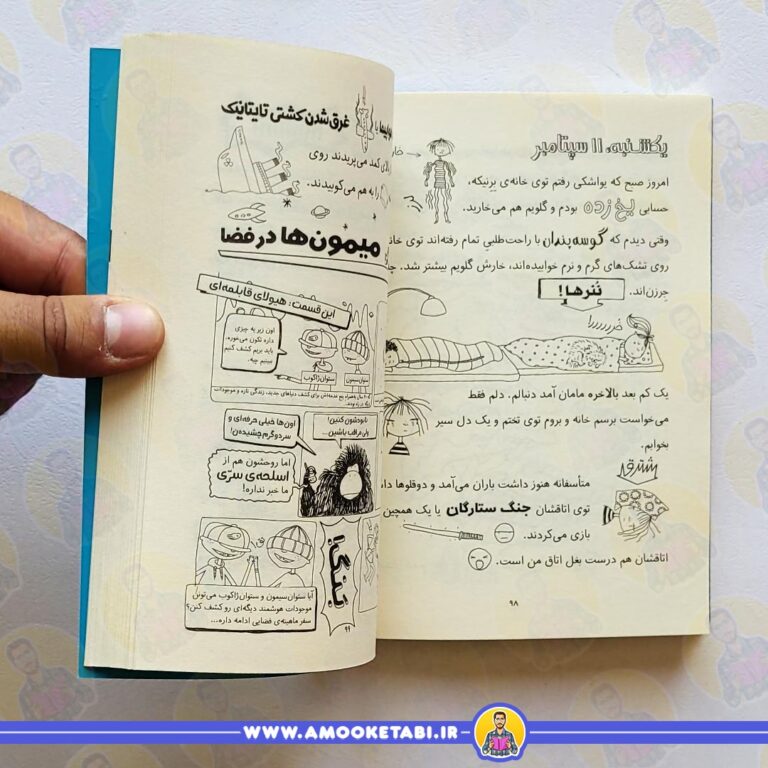 یکشنبه، ۱۱ سپتامبر
امروز صبح که یواشکی رفتم توی خانه‌ی برنیکه،
حسابی یخ زده بودم و گلویم هم می‌خارید.
وقتی دیدم که گوسه‌بندان با راحت‌طلبیِ تمام رفته‌اند توی
روی تشک‌های گرم و نرم خوابیده‌اند، خارش گلویم بیشتر شد.
چِرزن‌اند.
نُنُرها!
خررررر!
یک کم بعد بالاخره مامان آمد دنبالم. دلم فقط
می‌خواست برسم خانه و بروم توی تختم و یک دل سیر
بخوابم.
شترق
متأسفانه هنوز داشت باران می‌آمد و دوقلوها
توی اتاقشان جنگ ستارگان یا یک همچین
بازی می‌کردند.
اتاقشان هم درست بغل اتاق من است.
۹۸
غرق شدن کشتی تایتانیک
کمد می‌پریدند روی
را به هم می‌کوبیدند.
میمون‌ها در فضا
این قسمت: هیولای قابلمه‌ای
اون زیر یه چیزی
داره تکون می‌خوره.
باید بریم کشف کنیم
ببینیم چیه.
ستوان ژاکوب
ستوان سیمون
برای کشف دنیاهای جدید، زندگی تازه و موجودات
نابودشون کنین!
ولی مراقب باشین...
اون‌ها خیلی حرفه‌ای و
سرد و گرم چشیده‌ن!
اما روحشون هم از
اسلحه‌ی سرّی
ما خبر نداره!
بَنگ!
آیا ستوان سیمون و ستوان ژاکوب می‌تونن
موجودات هوشمند دیگه‌ای رو کشف کنن؟
سفر ماهینه‌ی فضایی ادامه داره...
۹۹
WWW.AMOOKETABI.IR